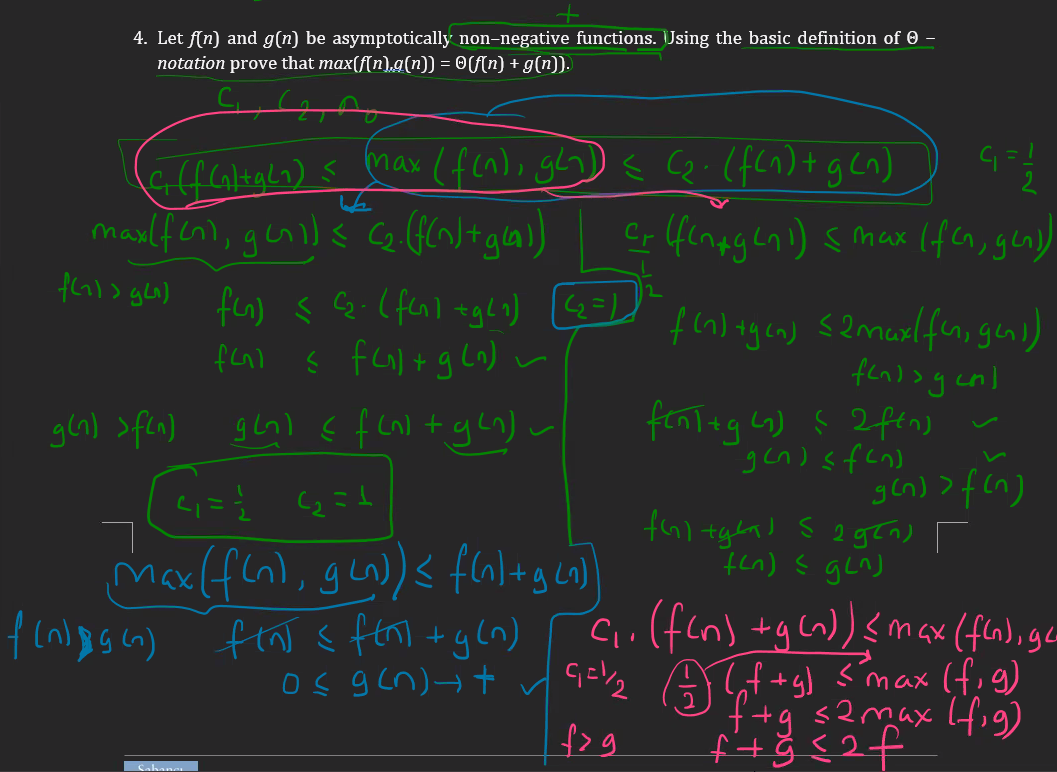 4. Let f(n) and g(n) be asymptotically non–negative functions. Using the basic definition of Θ –
notation prove that max(f(n),g(n)) = Θ(f(n) + g(n)).
+
C₁, C₂, n₀
C₁(f(n)+g(n)) ≤ max(f(n), g(n)) ≤ C₂·(f(n)+g(n))
C₁ = 1/2
max(f(n), g(n)) ≤ C₂·(f(n)+g(n))
f(n) > g(n)
f(n) ≤ C₂·(f(n)+g(n))
C₂ = 1
f(n) ≤ f(n)+g(n) ✓
g(n) > f(n) g(n) ≤ f(n)+g(n) ✓
C₁ = 1/2 C₂ = 1
C₁ (f(n+g(n)) ≤ max(f(n, g(n))
1/2
f(n)+g(n) ≤ 2max(f(n, g(n))
f(n) > g(n)
f(n)+g(n) ≤ 2f(n) ✓
g(n) ≤ f(n) ✓
g(n) > f(n)
f(n)+g(n) ≤ 2g(n)
f(n) ≤ g(n)
max(f(n), g(n)) ≤ f(n)+g(n)
f(n) > g(n) f(n) ≤ f(n)+g(n)
0 ≤ g(n) → + ✓
C₁·(f(n)+g(n)) ≤ max(f(n), g
C₁=1/2 1/2·(f+g) ≤ max(f,g)
f+g ≤ 2max(f,g)
f>g f+g ≤ 2f
Sabancı